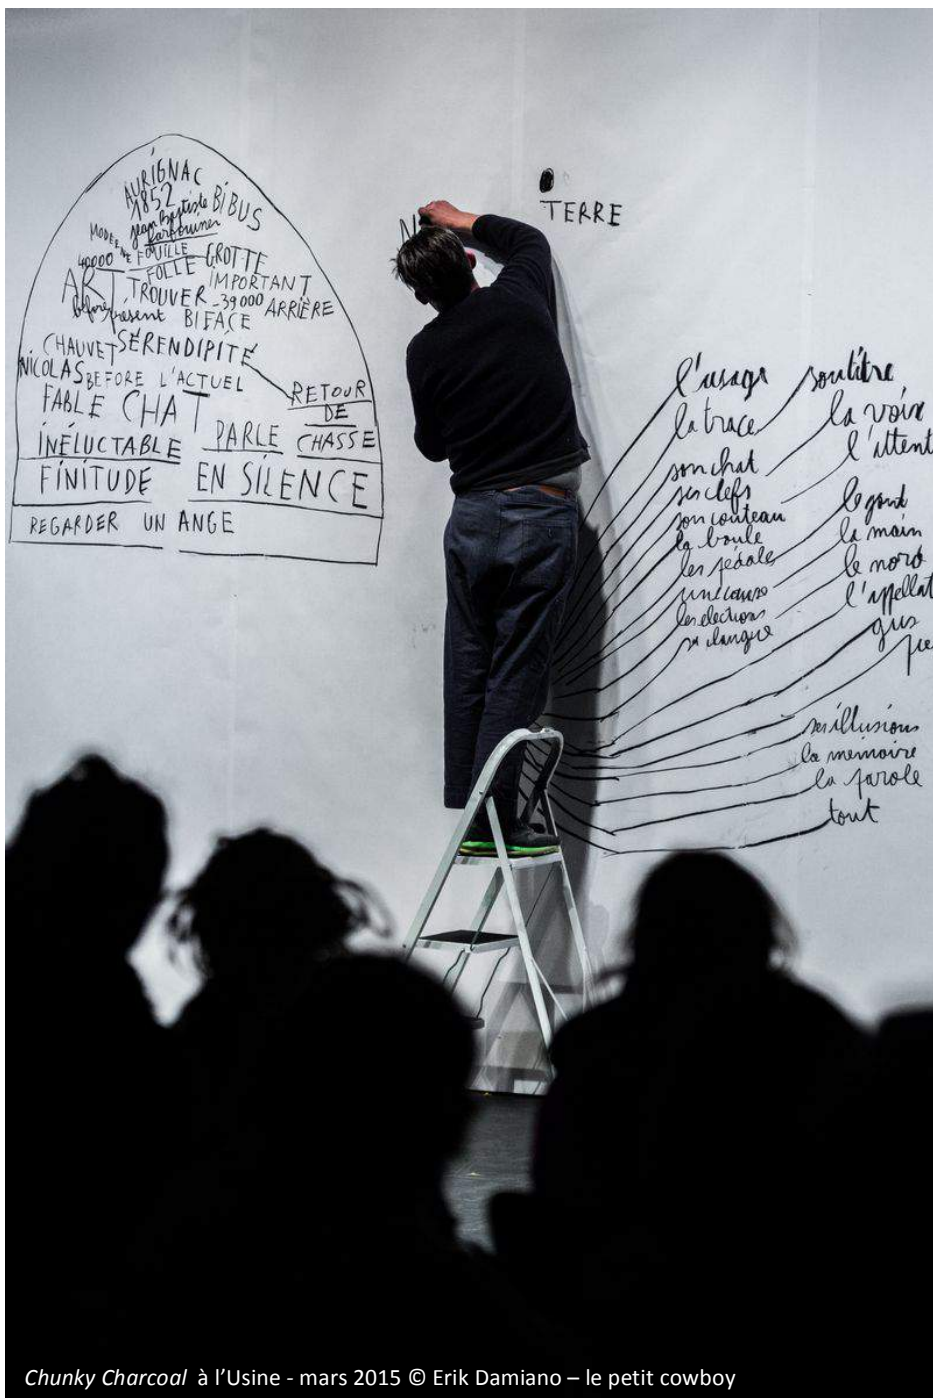 AURIGNAC
1852 BIBUS
jean Baptiste
MODERNE FOUILLE GROTTE
40000 FOLLE IMPORTANT
ART TROUVER -39000 ARRIÈRE
before présent BIFACE
CHAUVET SÉRENDIPITÉ
NICOLAS BEFORE L'ACTUEL RETOUR
FABLE CHAT DE
INÉLUCTABLE PARLE CHASSE
FINITUDE EN SILENCE
REGARDER UN ANGE
N
TERRE
l'usage
la trace
son chat
ses clefs
son couteau
la boule
les pédales
une course
les élections
sa langue
soutitre
la voix
l'attent
le gout
la main
le nord
l'appellat
gus
ses illusions
la mémoire
la parole
tout
Chunky Charcoal à l'Usine - mars 2015 © Erik Damiano – le petit cowboy